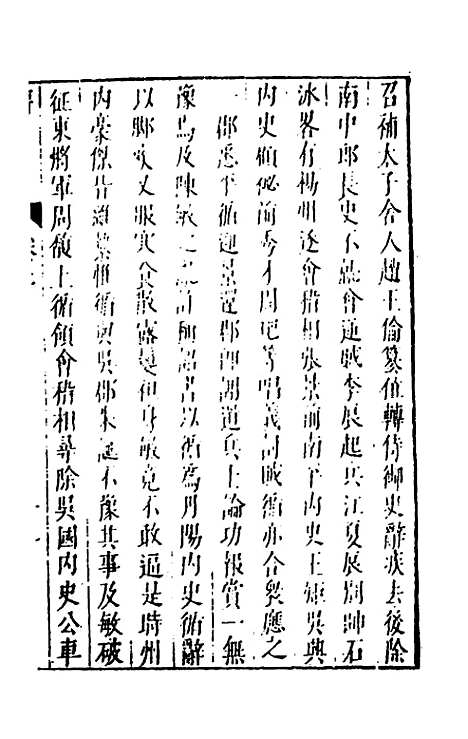 召補太子舍人趙王倫篡位轉侍御史辭疾去後除
南中郎長史不就會逆賊李辰起兵江夏辰別帥石
冰畧有揚州逐會稽相張景前南平內史王矩吳興
內史顧秘前秀才周玘等唱義討賊循亦合衆應之
郡悉平循迎景還郡即謝遣兵士論功報賞一無
豫焉及陳敏之亂詐稱詔書以循爲丹陽內史循辭
以腳疾又服寒食散露髮袒身敏竟不敢逼是時州
內豪傑皆維縶惟循與吳郡朱誕不豫其事及敏破
征東將軍周馥上循領會稽相尋除吳國內史公車